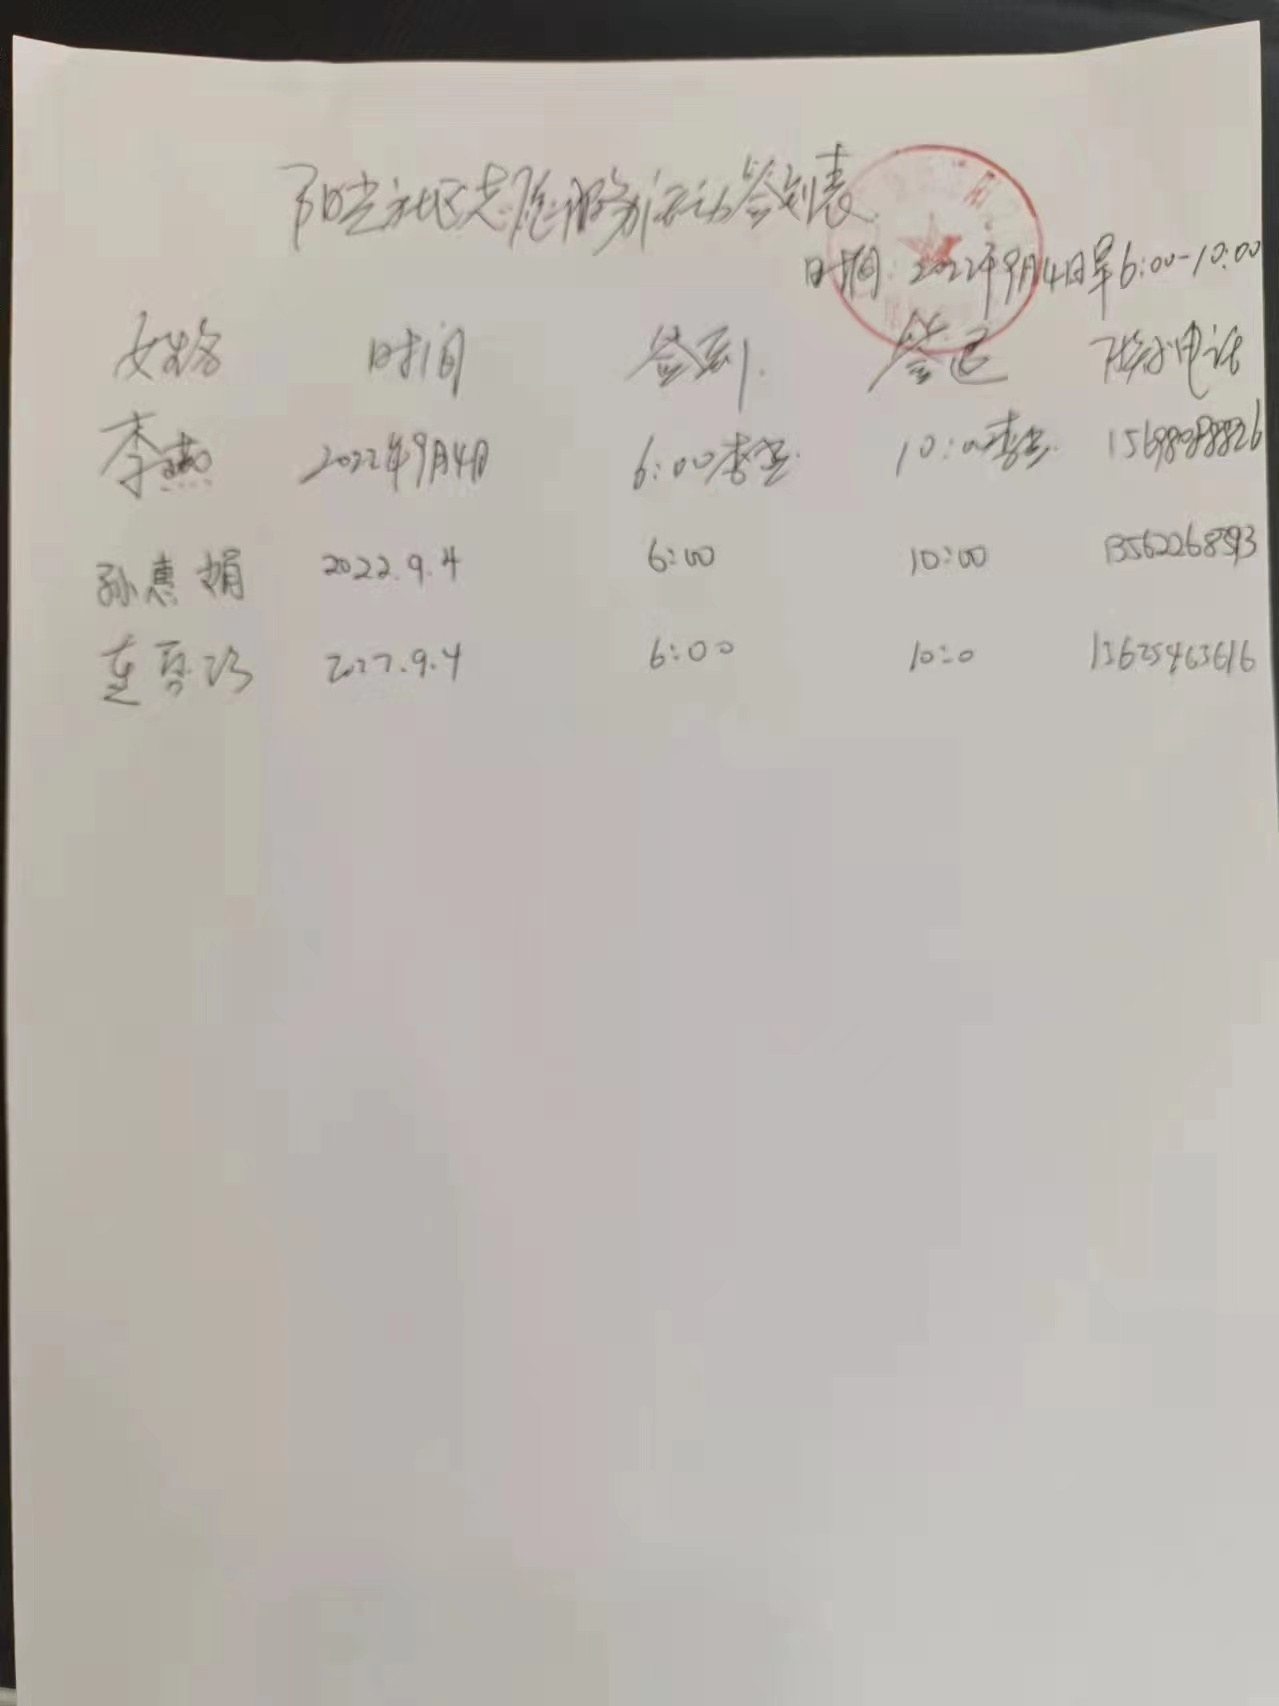 阳光社区志愿服务活动签到表
日期 2022年9月4日早6:00-10:00
姓名 时间 签到 签退 联系电话
李燕 2022年9月4日 6:00李燕 10:00李燕 15698088826
孙惠娟 2022.9.4 6:00 10:00 13562268393
2022.9.4 6:00 10:0 13625463616